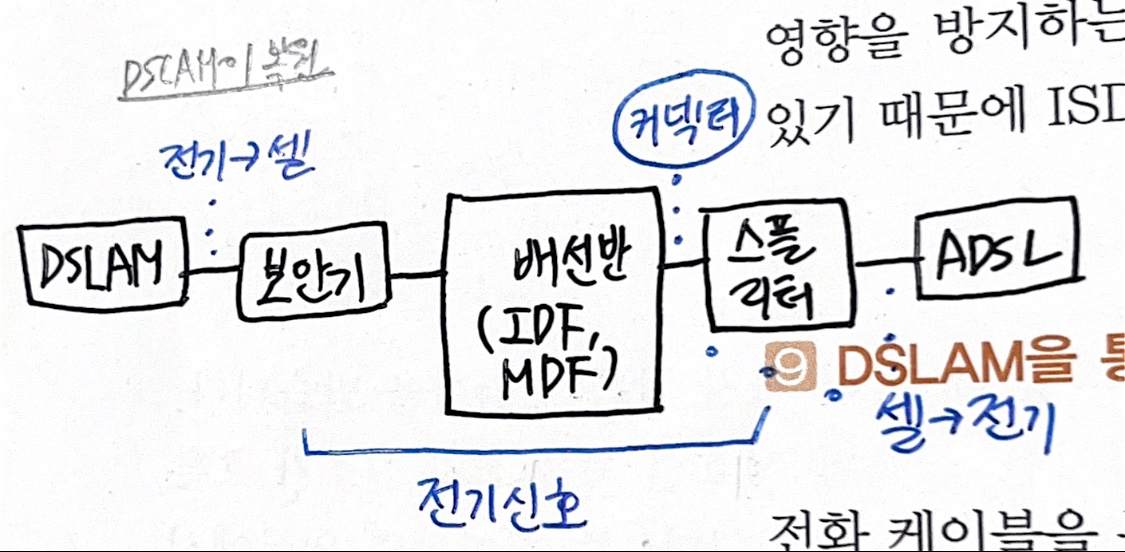 DSLAM이 복원
영향을 방지하는
커넥터
있기 때문에 ISD
전기→셀
DSLAM
보안기
배선반
(IDF,
MDF)
스플
리터
ADSL
9 DSLAM을 통
셀→전기
전기신호
전화 케이블을